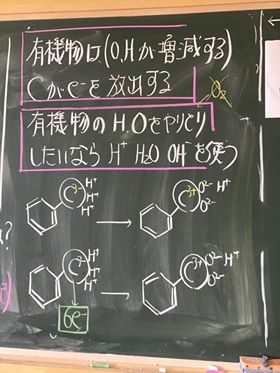 有機物は(O,Hが増減する
Cがe⁻を放出する
O₂
有機物のH,Oをやりとり
したいなら H⁺ H₂O OH⁻を使う
3- H⁺ H⁺ H⁺ → 3+ O²⁻ O²⁻ H⁺
H⁺ H⁺ H⁺ → 3+ O²⁻ H⁺ O²⁻
6e⁻